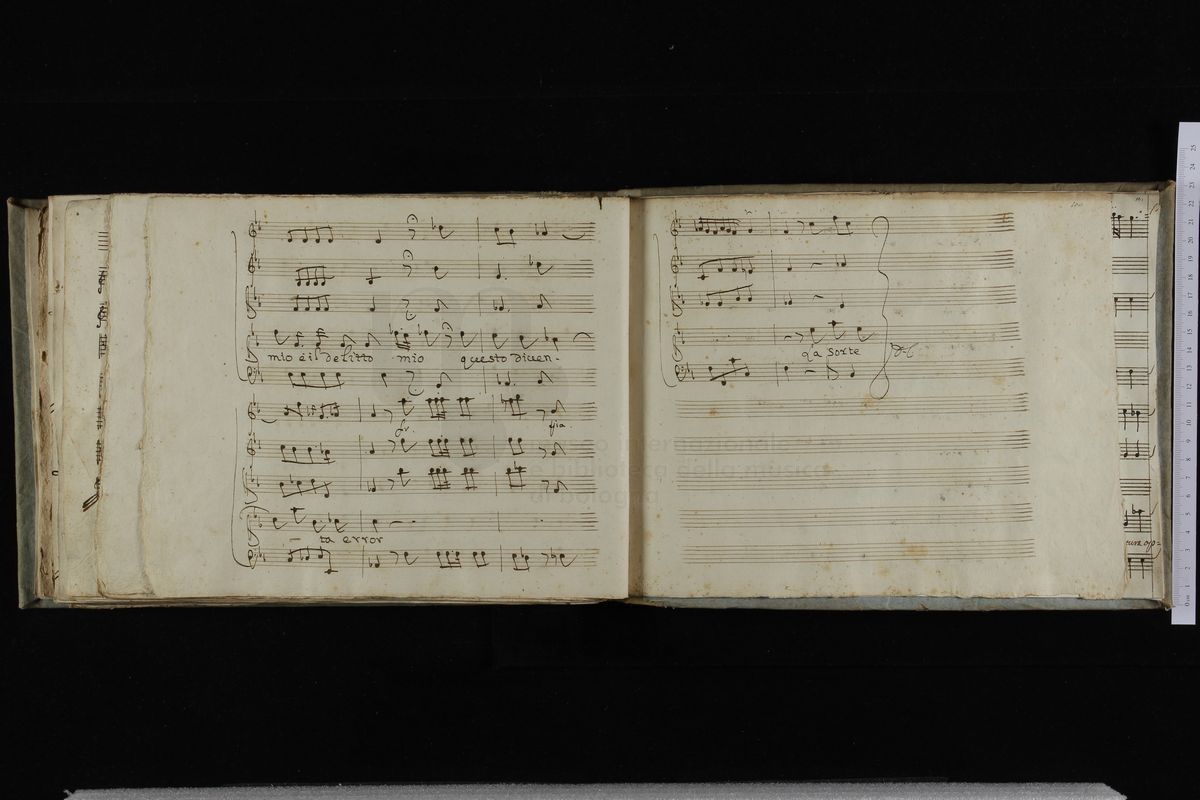 mio è il delitto mio questo diuen-
ta error
ga sorte
museo internazionale
e biblioteca della musica
di bologna